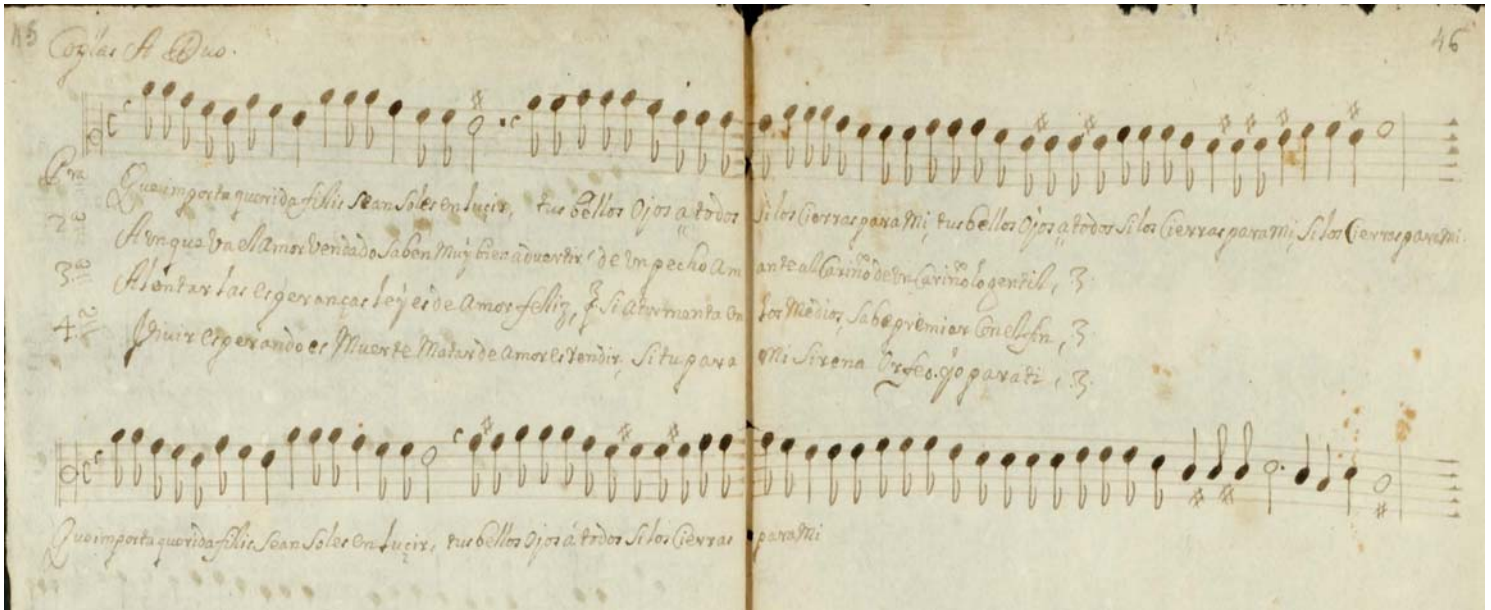 45
46
Coplas A Duo.
Pra Que importa querida filis sean soles en luçir, tus bellos ojos a todos si los Cierras para Mi, tus bellos ojos a todos si los Cierras para Mi, si los Cierras para Mi.
2a Aunque va el Amor Vendado saben Muy bien advertir de un pecho Amante al Cariño de un Cariño lo gentil, 3
3a Alentar las esperanças leyes de Amor feliz, si atormenta en los Medios, sabe premiar Con el fin, 3
4a Vivir esperando es Muerte Matar de amor es rendir, si tu para Mi sirena Orfeo yo para ti, 3
Que importa querida filis sean soles en luçir, tus bellos ojos á todos si los Cierras para Mi